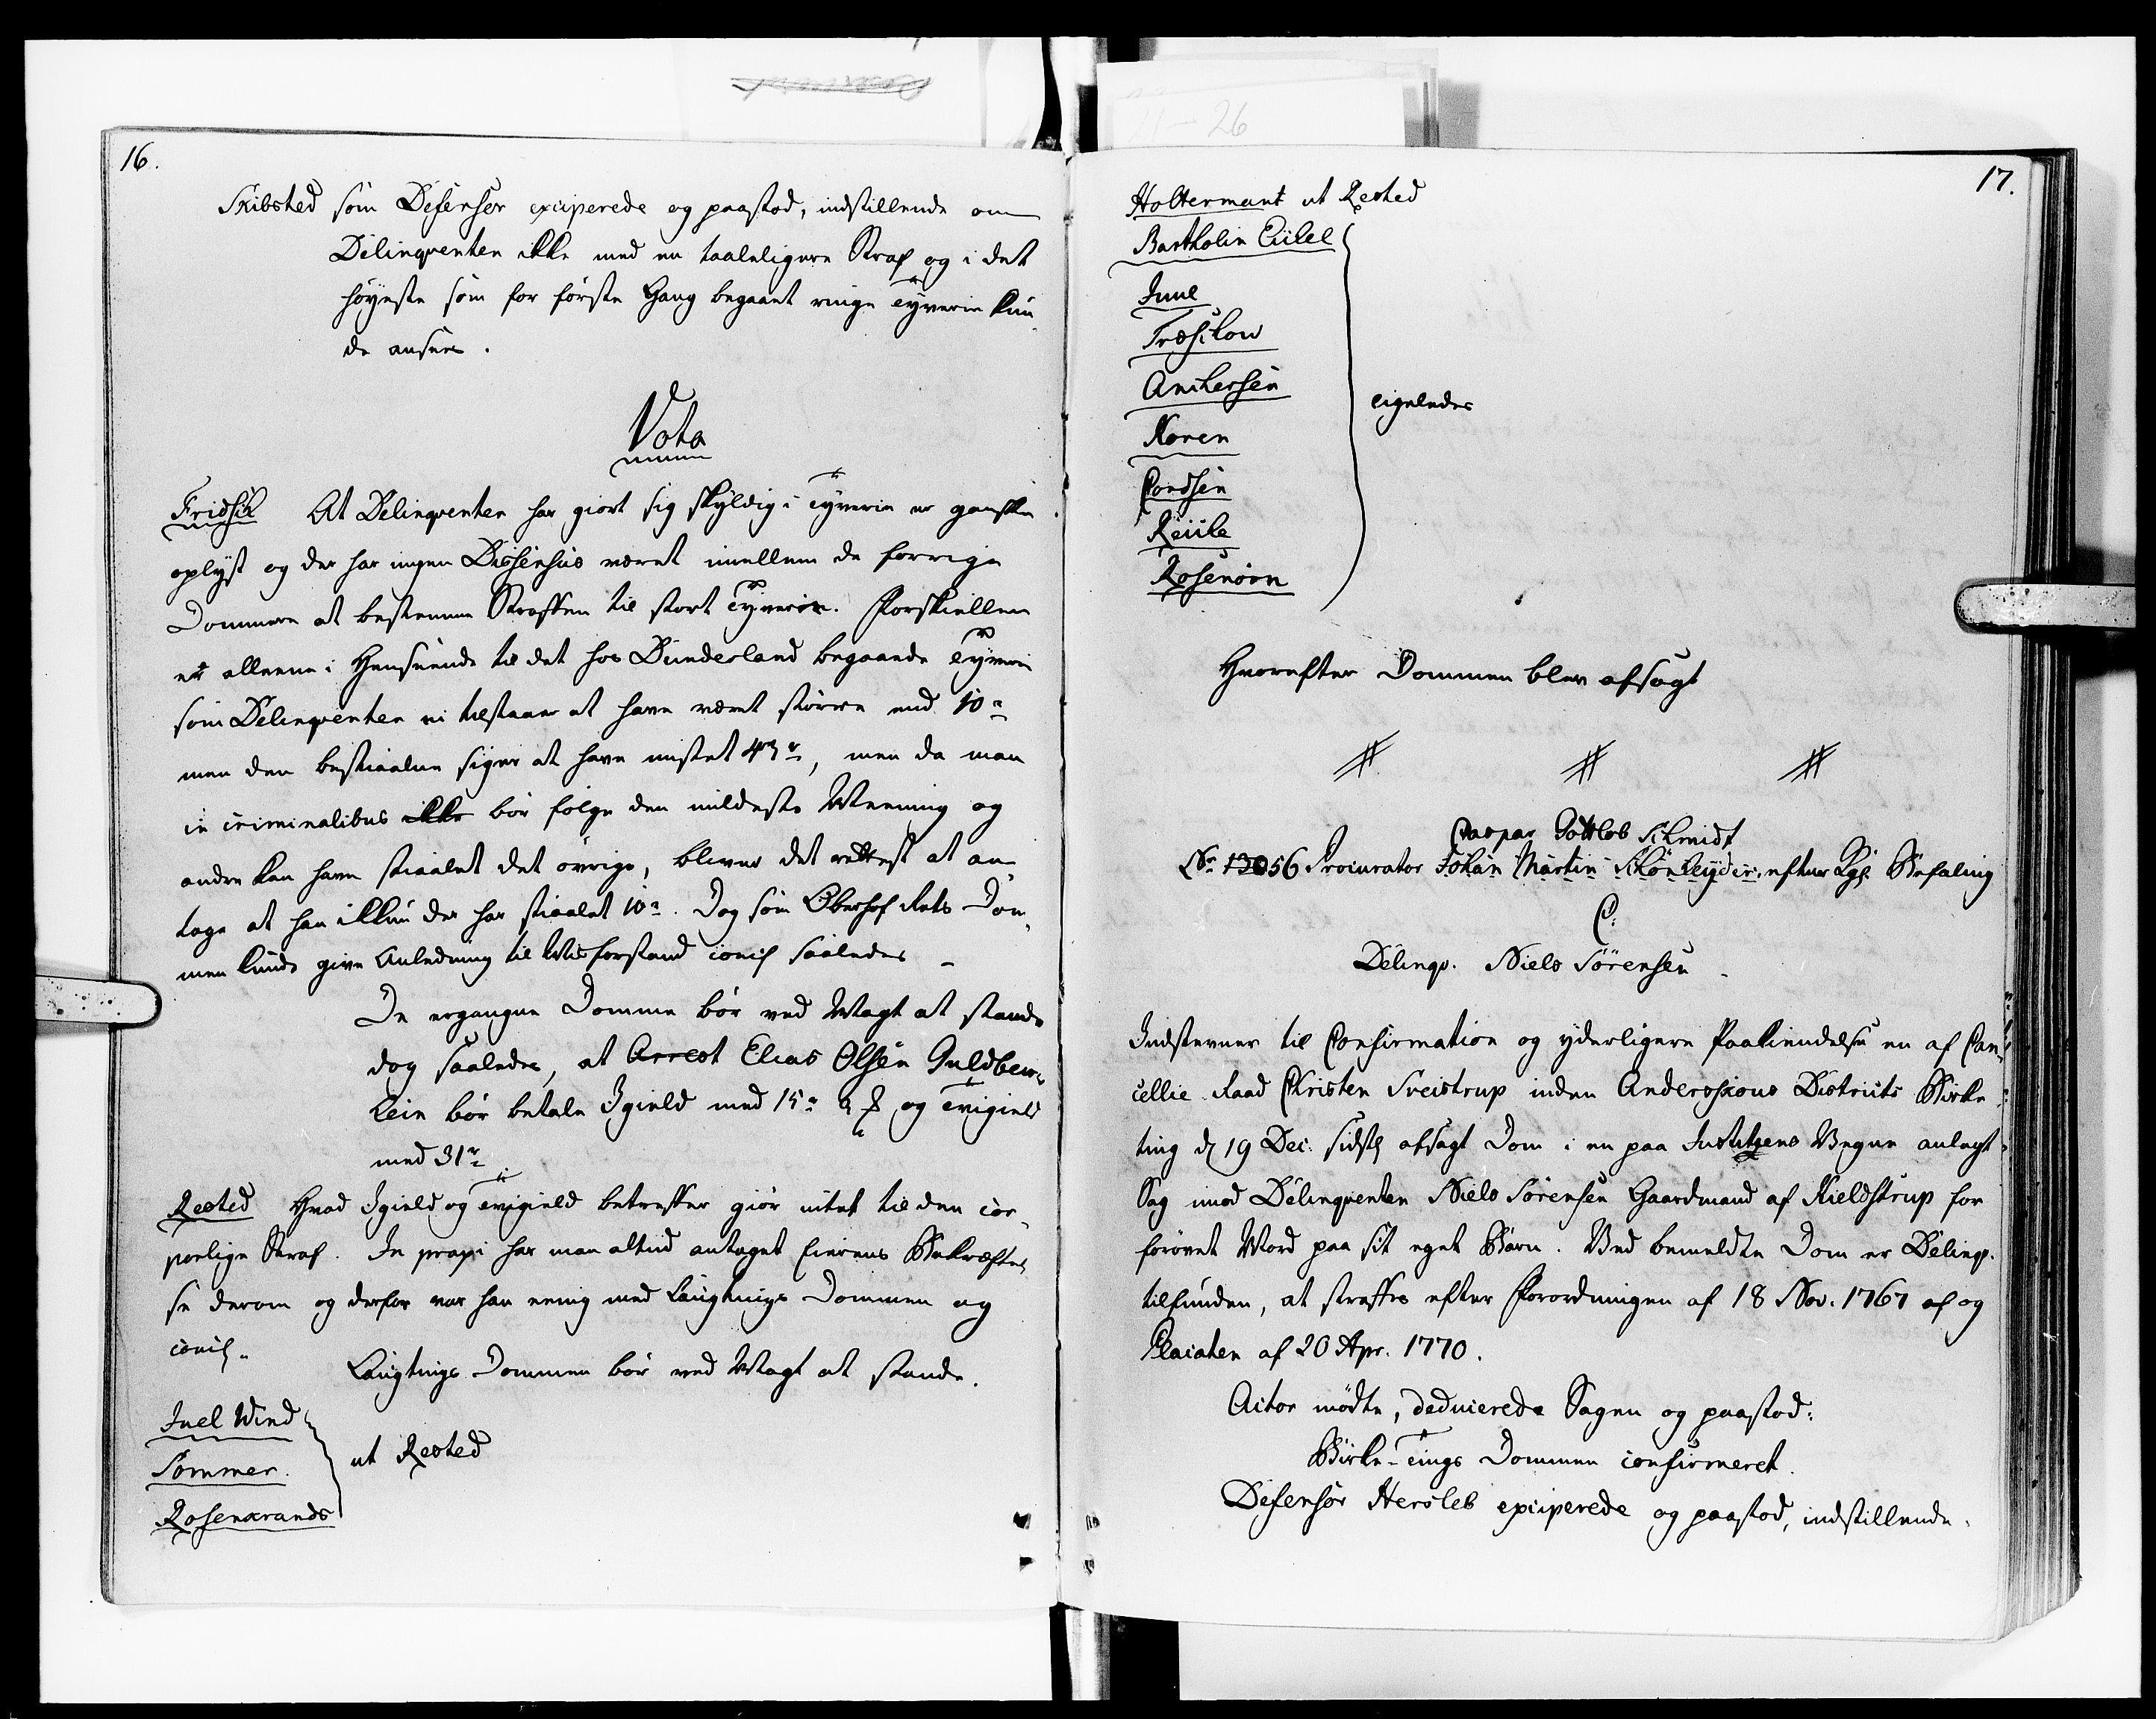 16.
Skibsted som Defensor exciperede og paastod, indstillende om
Delinqventen ikke med en taaleligere Straf og i det
høyeste som for første Gang begaaet ringe Tyverie kun-
de ansees.
Vota
Fridsch At Delinqventen har giort sig skyldig i Tyverie er ganske
oplyst og der har ingen Dissensus været imellem de forrige
Dommere at bestemme Straffen til stort Tyverie. Forskiellen
er alleene i Henseende til det hos Bunderland begaaede Tyverie
som Delinqventen ei tilstaaer at have været større end 10 r
men den bestiaalne siger at have mistet 43 r, men da man
in criminalibus ikke bør følge den mildeste Meening og
andre kan have stiaalet det øvrige, bliver det rettest at an-
tage at han ikkun der har stiaalet 10 r. Dog som Oberhof Rets Dom-
men kunde give Anledning til Misforstand conclf saaledes –
De ergangne Domme bør ved Magt at stande
dog saaledes, at Arrest Elias Olsen Guldber-
lein bør betale Igield med 15 r 2 ß og Tvigield
med 31 r
Rested Hvad Igield og Tvigield betreffer giør intet til den cor-
porlige Straf. In praxi har man altid antaget Eierens Bekræftel-
se derom og derfor var han eenig med Laugtings Dommen og
conclf.
Laugtings Dommen bør ved Magt at stande.
Juel Wind
Sommer
Rosenkrands
ut Rested
17.
Holtermant ut Rested
Bartholin Eichel
Juul
Treschow
Anchersen
Koren
Cordsen
Reiche
Rosenörn
ligeledes
Hvorefter Dommen blev afsagt
Caspar Gottlob Schmidt
No. 13056 Procurator Johan Martin Schönheyder, efter Kgl. Befaling
C:
Delinqv. Niels Sörensen
Indstevner til Confirmation og yderligere Paakiendelse en af Can-
cellie Raad Christen Sveistrup inden Anderskous Districts Birke-
ting d 19 Dec. sidstl afsagt Dom i en paa Justitzens Vegne anlagt
Sag imod Delinqventen Niels Sörensen Gaardmand af Kieldstrup for
forøvet Mord paa sit eget Barn. Ved bemeldte Dom er Delinqv.
tilfunden, at straffes efter Forordningen af 18 Nov. 1767 af og
Placaten af 20 Apr. 1770.
Actor mødte, deducerede Sagen og paastod:
Birke-Tings Dommen confirmeret.
Defensor Hersleb exciperede og paastod, indstillende.